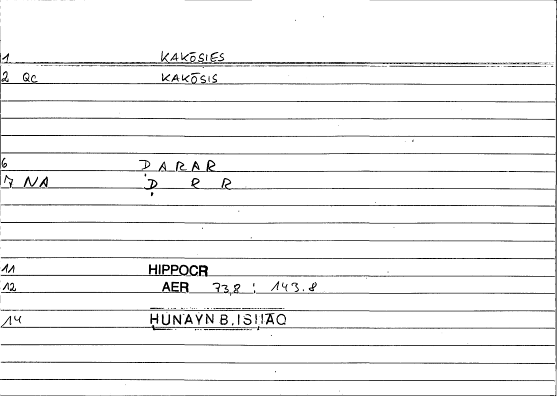 1 KAKŌSIES
2 Qc KAKŌSIS
6 ḌARAR
7 NA Ḍ R R
11 HIPPOCR
12 AER 73,8 : 143.8
14 ḤUNAYN B. ISḤĀQ